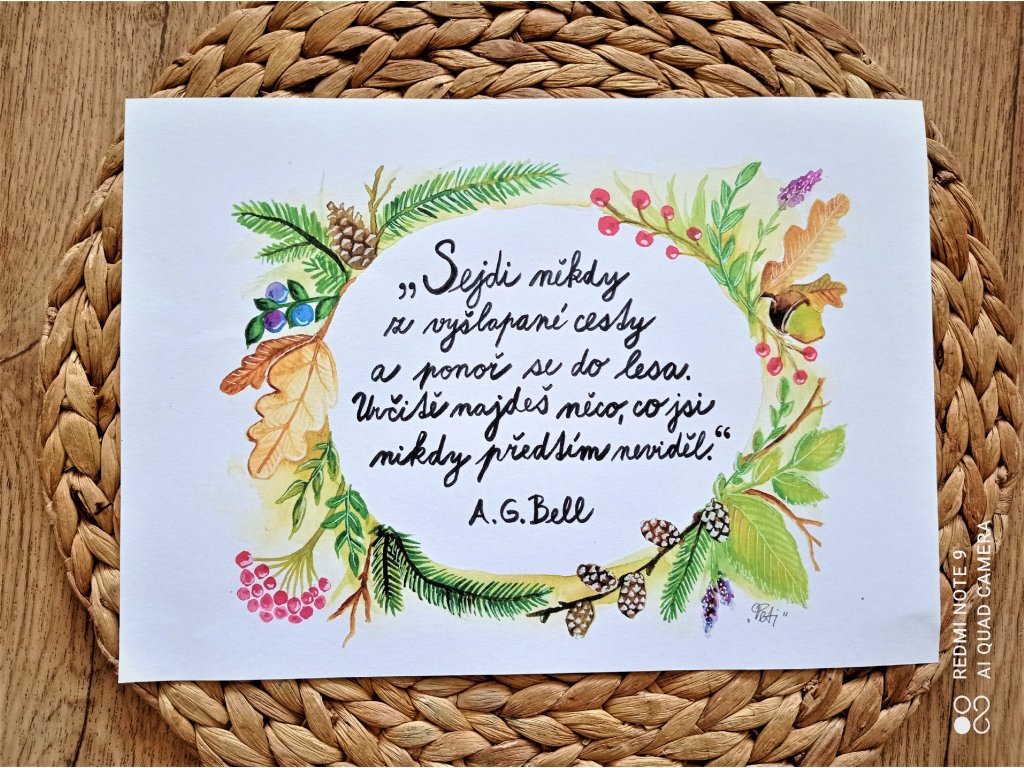 „Sejdi někdy
z vyšlapané cesty
a ponoř se do lesa.
Určitě najdeš něco, co jsi
nikdy předtím neviděl.“
A.G.Bell
REDMI NOTE 9
AI QUAD CAMERA